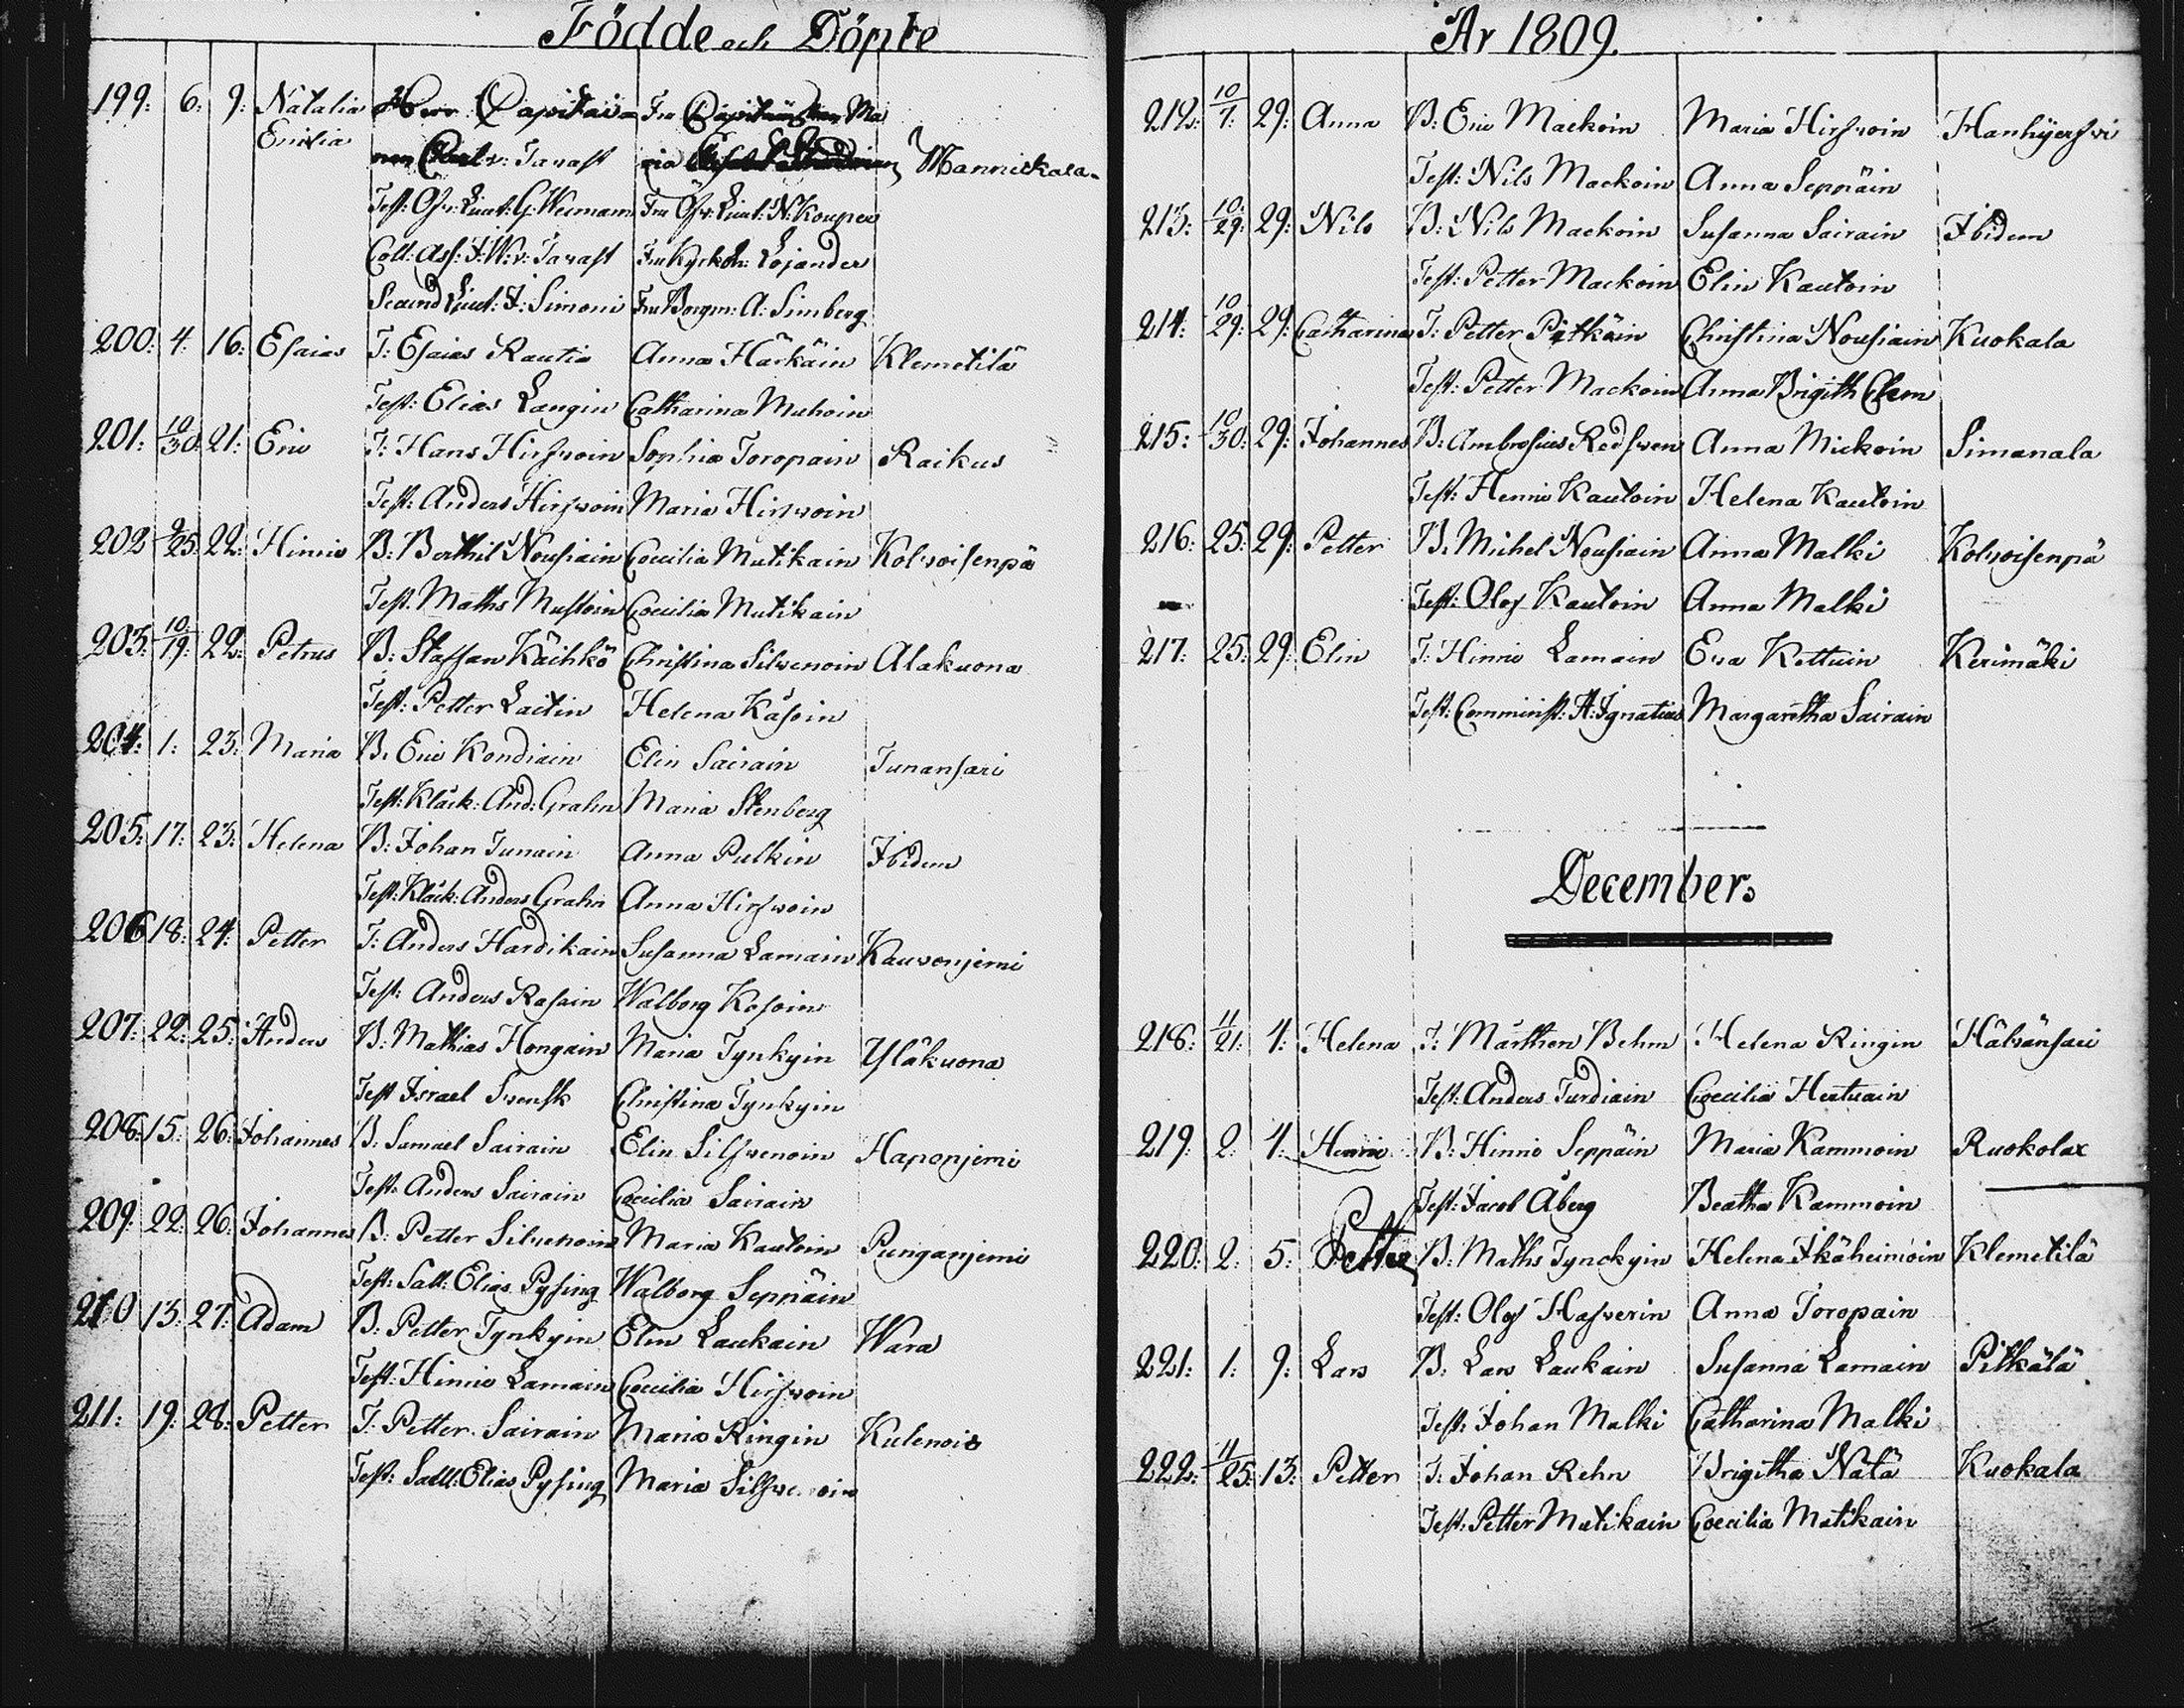 Födde och Döpte
199: 6: 9: Natalia Herr Capitai- Fru Capitainskan Ma
Emilia nen Carl v: Tavast ria Mannickala
Test: Öfv: Lieut: G: Weman Fru Öfv: Lieut: N: Kouper
Coll: Ass: F: W: v: Tavast Fru Kyrkoh: Lojander
Secund Lieut: F: Simoni Fru Borgm: A: Simberg
200: 4: 16: Esaias T: Esaias Rautia Anna Härkäin Klemetilä
Test: Elias Langin Catharina Muhoin
201: 10/30: 21: Eric T: Hans Hirfwoin Sophia Toropain Raikus
Test: Anders Hirfwoin Maria Hirfwoin
202 9/25: 22: Hinric B: Berthil Nousiain Coecilia Mutikain Kolvoisenpä
Test: Maths Mustoin Coecilia Mutikain
203: 10/19: 22: Petrus B: Staffan Käihkö Christina Silvenoin Alakuona
Test: Petter Laitin Helena Käsoin
204: 1: 23: Maria B: Eric Kondiain Elin Sairain Junansari
Test: Kläck: And: Grahn Maria Stenberg
205: 17: 23: Helena B: Johan Junain Anna Pulkin Ibidem
Test: Kläck: Anders Grahn Anna Hirfwoin
206 18: 24: Petter T: Anders Hardikain Susanna Lamain Kauvonjemi
Test: Anders Rasain Walborg Kosoin
207: 22: 25: Anders B: Mathias Hongain Maria Tynkyin Yläkuona
Test Israel Svensk Christina Tynkyin
208: 15: 26: Johannes B: Samuel Sairain Elin Silfvenoin Haponjemi
Test: Anders Sairain Coecilia Sairain
209: 22: 26: Johannes B: Petter Silvenoin Maria Kautoin Punganjemi
Test: Sall: Elias Pysing Walborg Seppäin
210 13: 27: Adam B: Petter Tynkyin Elin Laukain Wara
Test: Hinric Lamain Coecilia Hirfwoin
211: 19: 28: Petter T: Petter Sairain Maria Ringin Kulenois
Test: Sall: Elias Pysing Maria Silfvenoin
År 1809.
212: 10/7: 29: Anna B: Eric Mackoin Maria Hirfwoin Hanhijerfvi
Test: Nils Mackoin Anna Seppäin
213: 10/29: 29: Nils B: Nils Mackoin Susanna Sairain Ibidem
Test: Petter Mackoin Elin Kautoin
214: 10/29: 29: Catharina T: Petter Pitkäin Christina Nousiain Kuokala
Test: Petter Mackoin Anna Brigith Clem
215: 10/30: 29: Johannes B: Ambrosius Redfven Anna Mickoin Simanala
Test: Henric Kautoin Helena Kautoin
216: 25: 29: Petter B: Michel Nousiain Anna Malki Kolvoisenpä
Test: Olof Kautoin Anna Malki
217: 25: 29: Elin T: Hinric Lamain Eva Kettuin Kerimäki
Test: Comminist: A: Ignatius Margaretha Sairain
December.
218: 11/21: 4: Helena T: Mårthen Behm Helena Ringin Hälvänsari
Test: Anders Turdiain Coecilia Hertuain
219: 2: 4: Henric B: Hinric Seppäin Maria Kammoin Ruokolax
Test: Jacob Åberg Beatha Kammoin
220: 2: 5: Petter B: Maths Tynckyin Helena Ikäheimoin Klemetilä
Test: Olof Hasverin Anna Toropain
221: 1: 9: Lars B: Lars Laukain Susanna Lamain Pitkälä
Test: Johan Malki Catharina Malki
222: 11/25: 13: Petter T: Johan Rehn Brigitha Nätä Kuokala
Test: Petter Mutikain Coecilia Mutikain